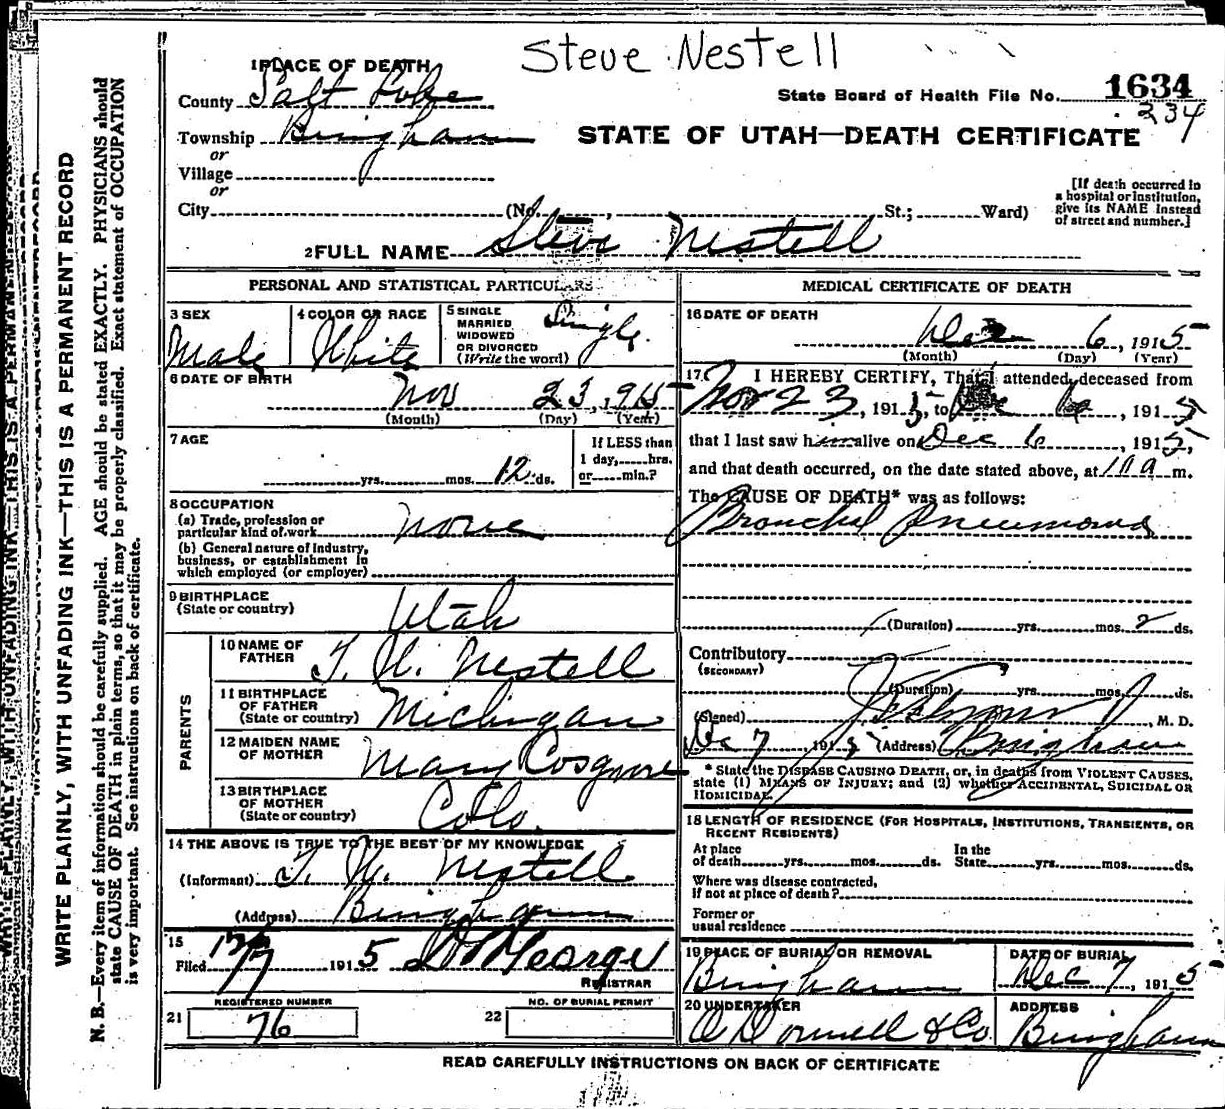 Steve Nestell
1 PLACE OF DEATH
County Salt Lake
State Board of Health File No. 1634
234
Township Bingham
STATE OF UTAH—DEATH CERTIFICATE
or
Village
or
City (No. , St.; Ward)
[If death occurred in
a hospital or institution,
give its NAME instead
of street and number.]
2 FULL NAME Steve Nestell
PERSONAL AND STATISTICAL PARTICULARS
3 SEX
Male
4 COLOR OR RACE
White
5 SINGLE
MARRIED
WIDOWED
OR DIVORCED
(Write the word)
Single
6 DATE OF BIRTH
Nov 23, 1915
(Month) (Day) (Year)
7 AGE
yrs. mos. 12 ds.
If LESS than
1 day, hrs.
or min.?
8 OCCUPATION
(a) Trade, profession or
particular kind of work None
(b) General nature of industry,
business, or establishment in
which employed (or employer)
9 BIRTHPLACE
(State or country) Utah
PARENTS
10 NAME OF
FATHER T. W. Nestell
11 BIRTHPLACE
OF FATHER
(State or country) Michigan
12 MAIDEN NAME
OF MOTHER Mary Cosgrove
13 BIRTHPLACE
OF MOTHER
(State or country) Colo.
14 THE ABOVE IS TRUE TO THE BEST OF MY KNOWLEDGE
(Informant) T. W. Nestell
(Address) Bingham
15
Filed 12/7 1915 George
REGISTRAR
REGISTERED NUMBER
21 76
NO. OF BURIAL PERMIT
22
MEDICAL CERTIFICATE OF DEATH
16 DATE OF DEATH
Dec 6, 1915
(Month) (Day) (Year)
17. I HEREBY CERTIFY, That I attended deceased from
Nov 23, 1915, to Dec 6, 1915
that I last saw him alive on Dec 6, 1915,
and that death occurred, on the date stated above, at m.
The CAUSE OF DEATH* was as follows:
Bronchial Pneumonia
(Duration) yrs. mos. 2 ds.
Contributory
(SECONDARY)
(Duration) yrs. mos. ds.
(Signed) , M. D.
Dec 7 1915 (Address) Bingham
* State the DISEASE CAUSING DEATH, or, in deaths from VIOLENT CAUSES,
state (1) MEANS OF INJURY; and (2) whether ACCIDENTAL, SUICIDAL OR
HOMICIDAL.
18 LENGTH OF RESIDENCE (FOR HOSPITALS, INSTITUTIONS, TRANSIENTS, OR
RECENT RESIDENTS)
At place
of death yrs. mos. ds.
In the
State yrs. mos. ds.
Where was disease contracted,
if not at place of death?
Former or
usual residence
19 PLACE OF BURIAL OR REMOVAL
Bingham
DATE OF BURIAL
Dec 7, 1915
20 UNDERTAKER
O'Donnell & Co.
ADDRESS
Bingham
READ CAREFULLY INSTRUCTIONS ON BACK OF CERTIFICATE
WRITE PLAINLY, WITH UNFADING INK—THIS IS A PERMANENT RECORD
N. B.—Every item of information should be carefully supplied. AGE should be stated EXACTLY. PHYSICIANS should
state CAUSE OF DEATH in plain terms, so that it may be properly classified. Exact statement of OCCUPATION
is very important. See instructions on back of certificate.